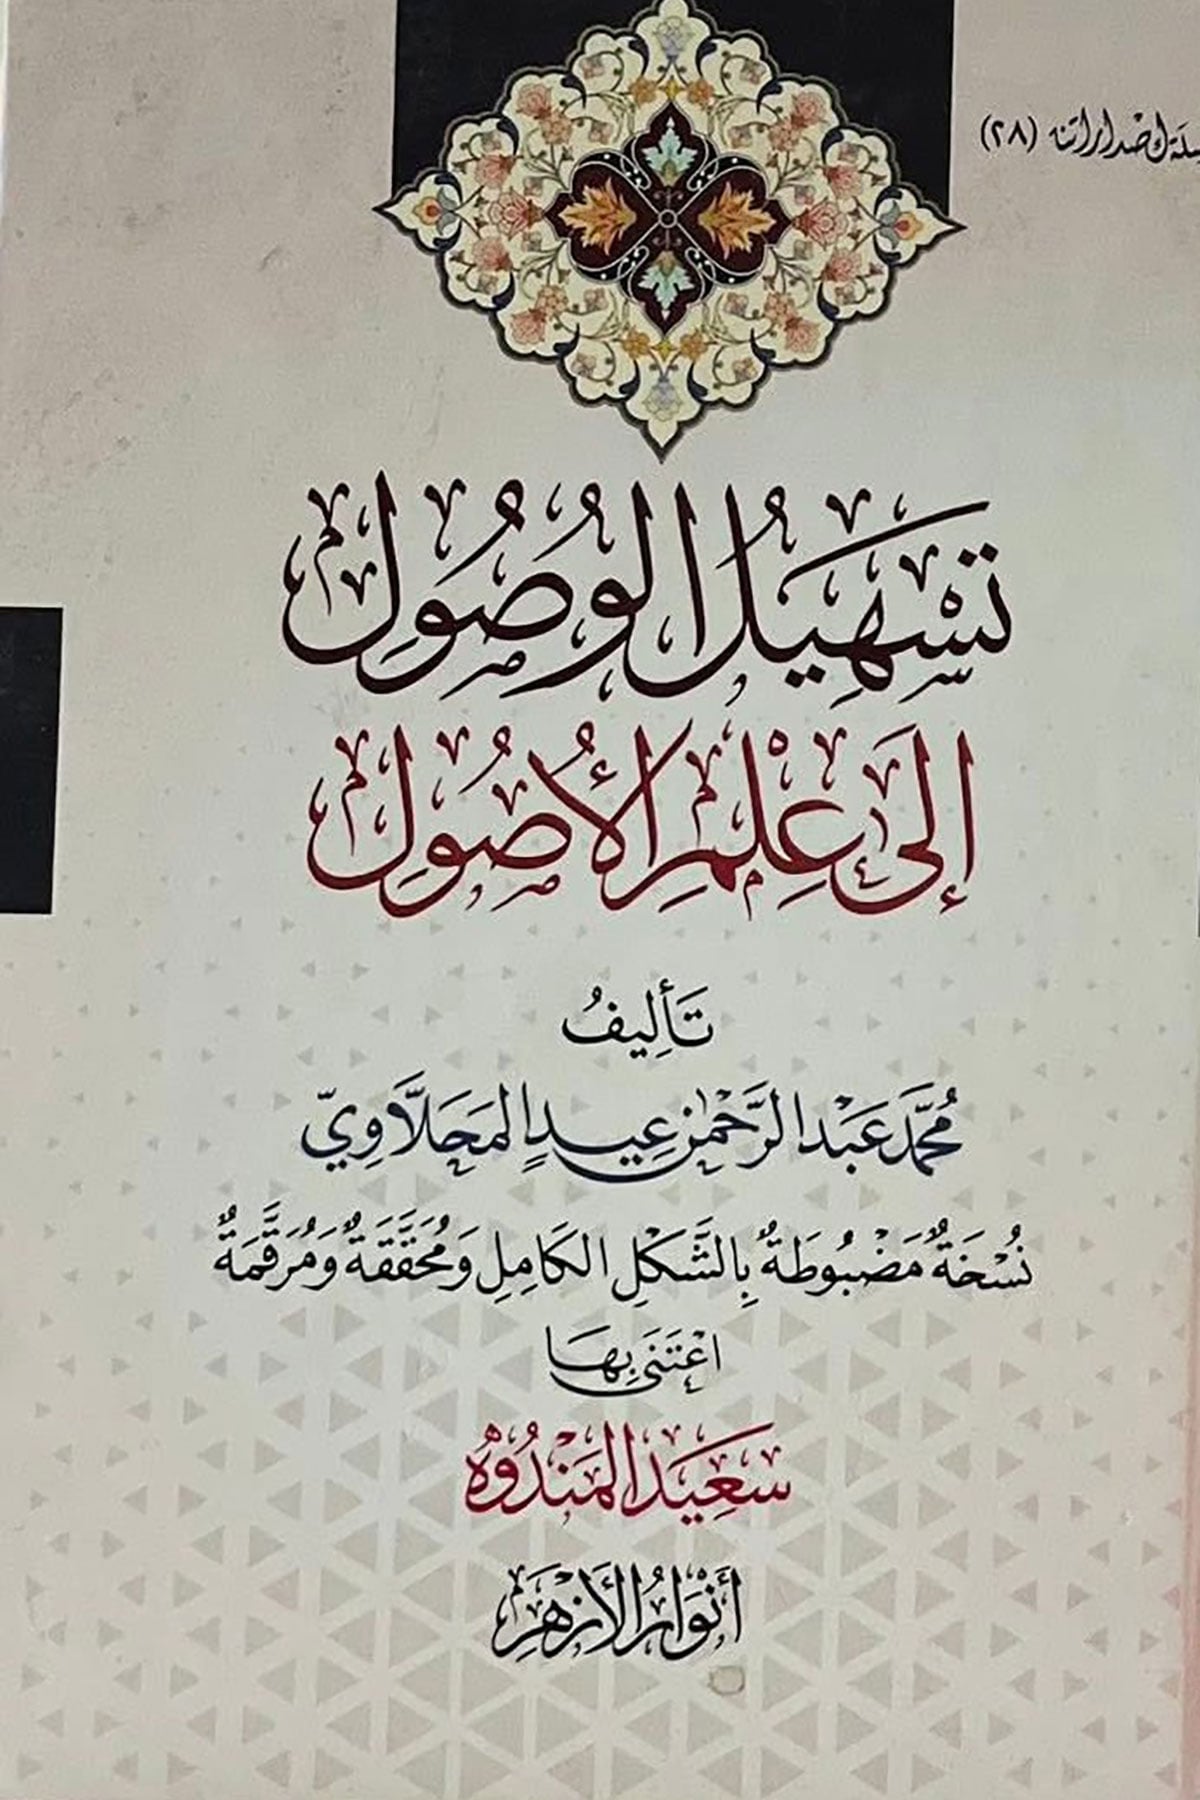 إصداراتنا (٢٨)
تَسْهِيلُ الْوُصُولِ
إِلَى عِلْمِ الْأُصُولِ
تَأْلِيفُ
مُحَمَّد عَبْد الرَّحْمٰن عِيدٍ المَحَلَّاوِيّ
نُسْخَةٌ مَضْبُوطَةٌ بِالشَّكْلِ الكَامِلِ وَمُحَقَّقَةٌ وَمُرَقَّمَةٌ
اعْتَنَى بِهَا
سَعِيد المَنْدُوهْ
أَنْوَارُ الْأَزْهَرِ